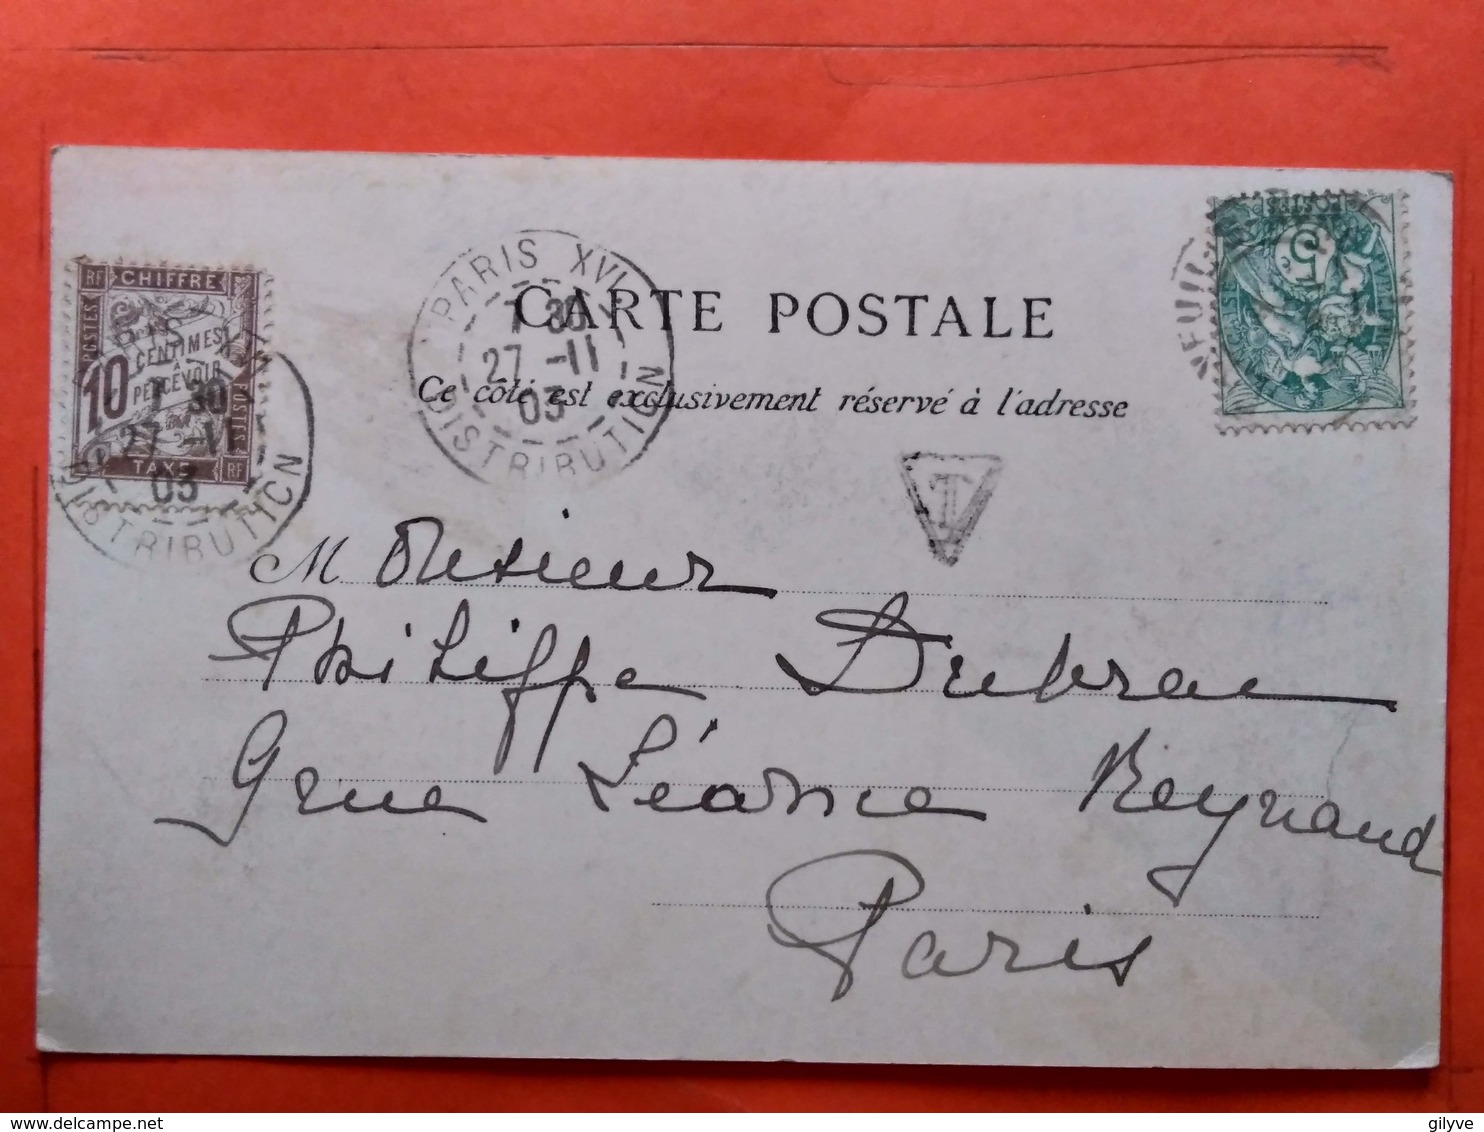 RF CHIFFRE
POSTES
10 CENTIMES
À
PERCEVOIR
POSTES
TAXE RF
7 30
27 -11
03
DISTRIBUTION
PARIS XVI
7 30
27 -11
03
DISTRIBUTION
CARTE POSTALE
Ce côté est exclusivement réservé à l'adresse
POSTES
5 c
T
Monsieur
Philippe Dubrac
9 rue Léonce Reynaud
Paris
delcampe.net
gilyve